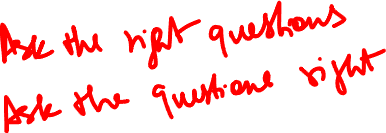 Ask the right questions
Ask the questions right